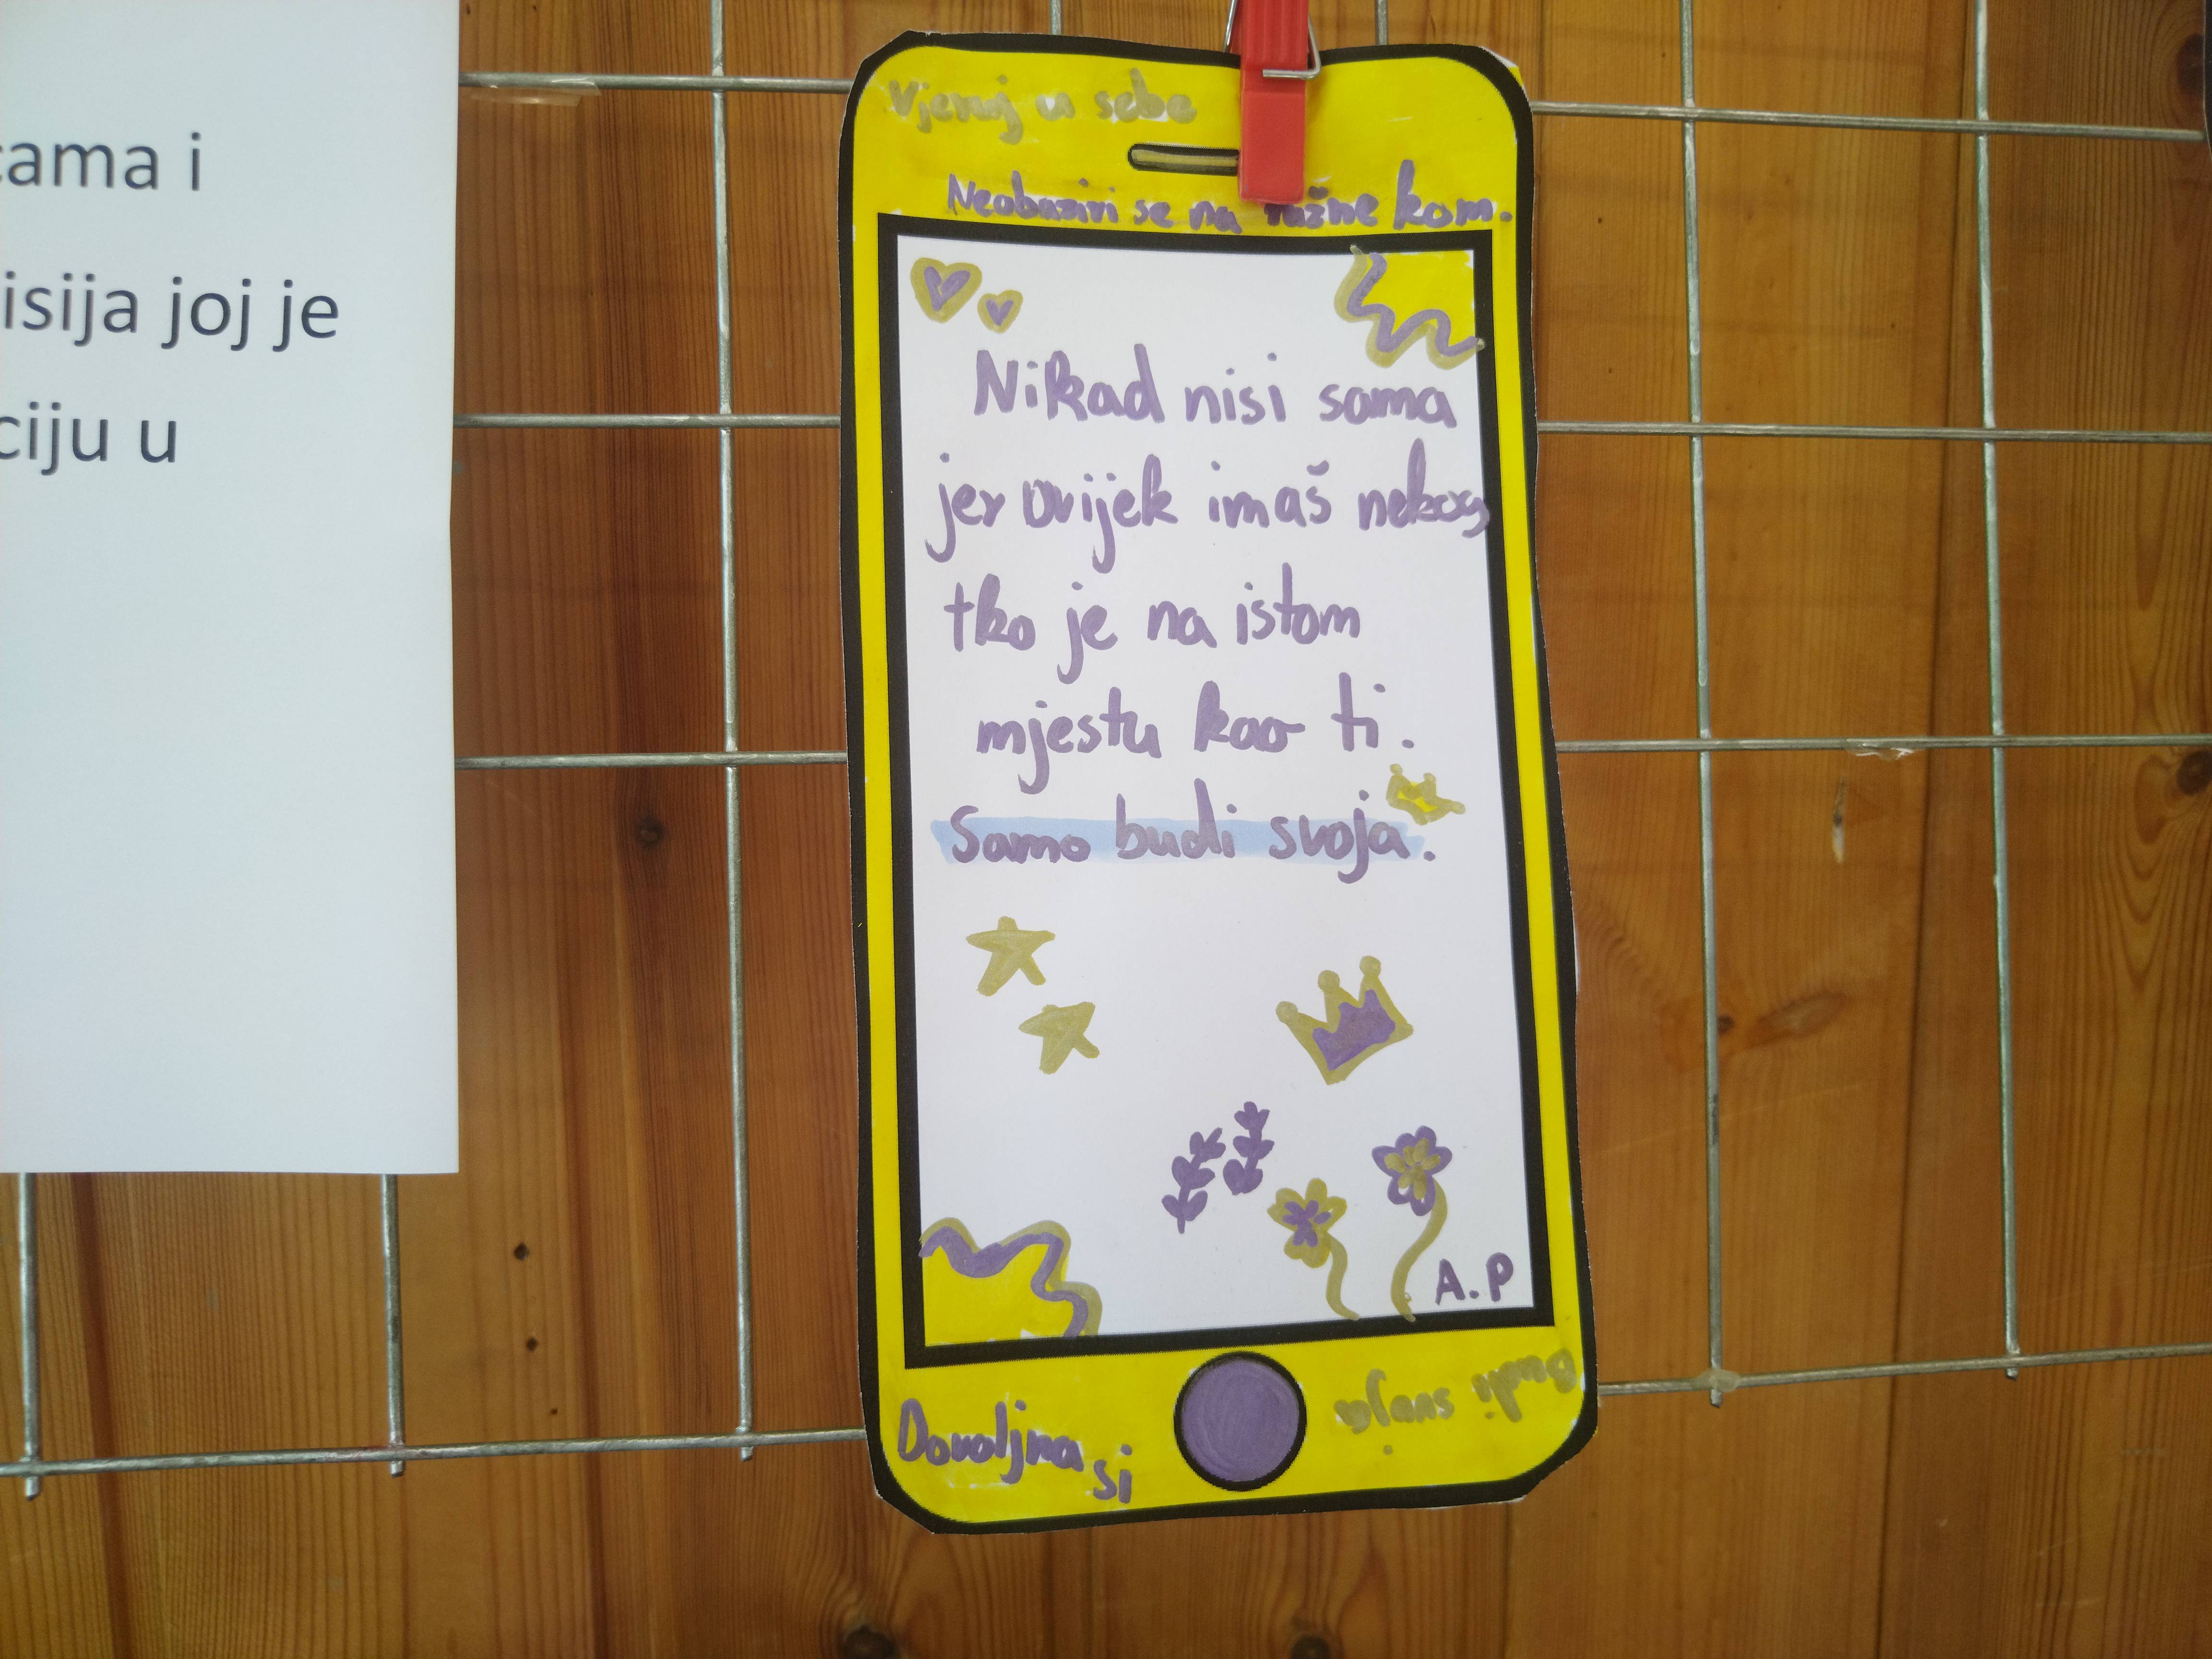 cama i
isija joj je
ciju u
Vjeruj u sebe
Neobaziri se na ružne kom.
Nikad nisi sama
jer uvijek imaš nekog
tko je na istom
mjestu kao ti.
Samo budi svoja.
A.P
Dovoljna si
Budi svoja